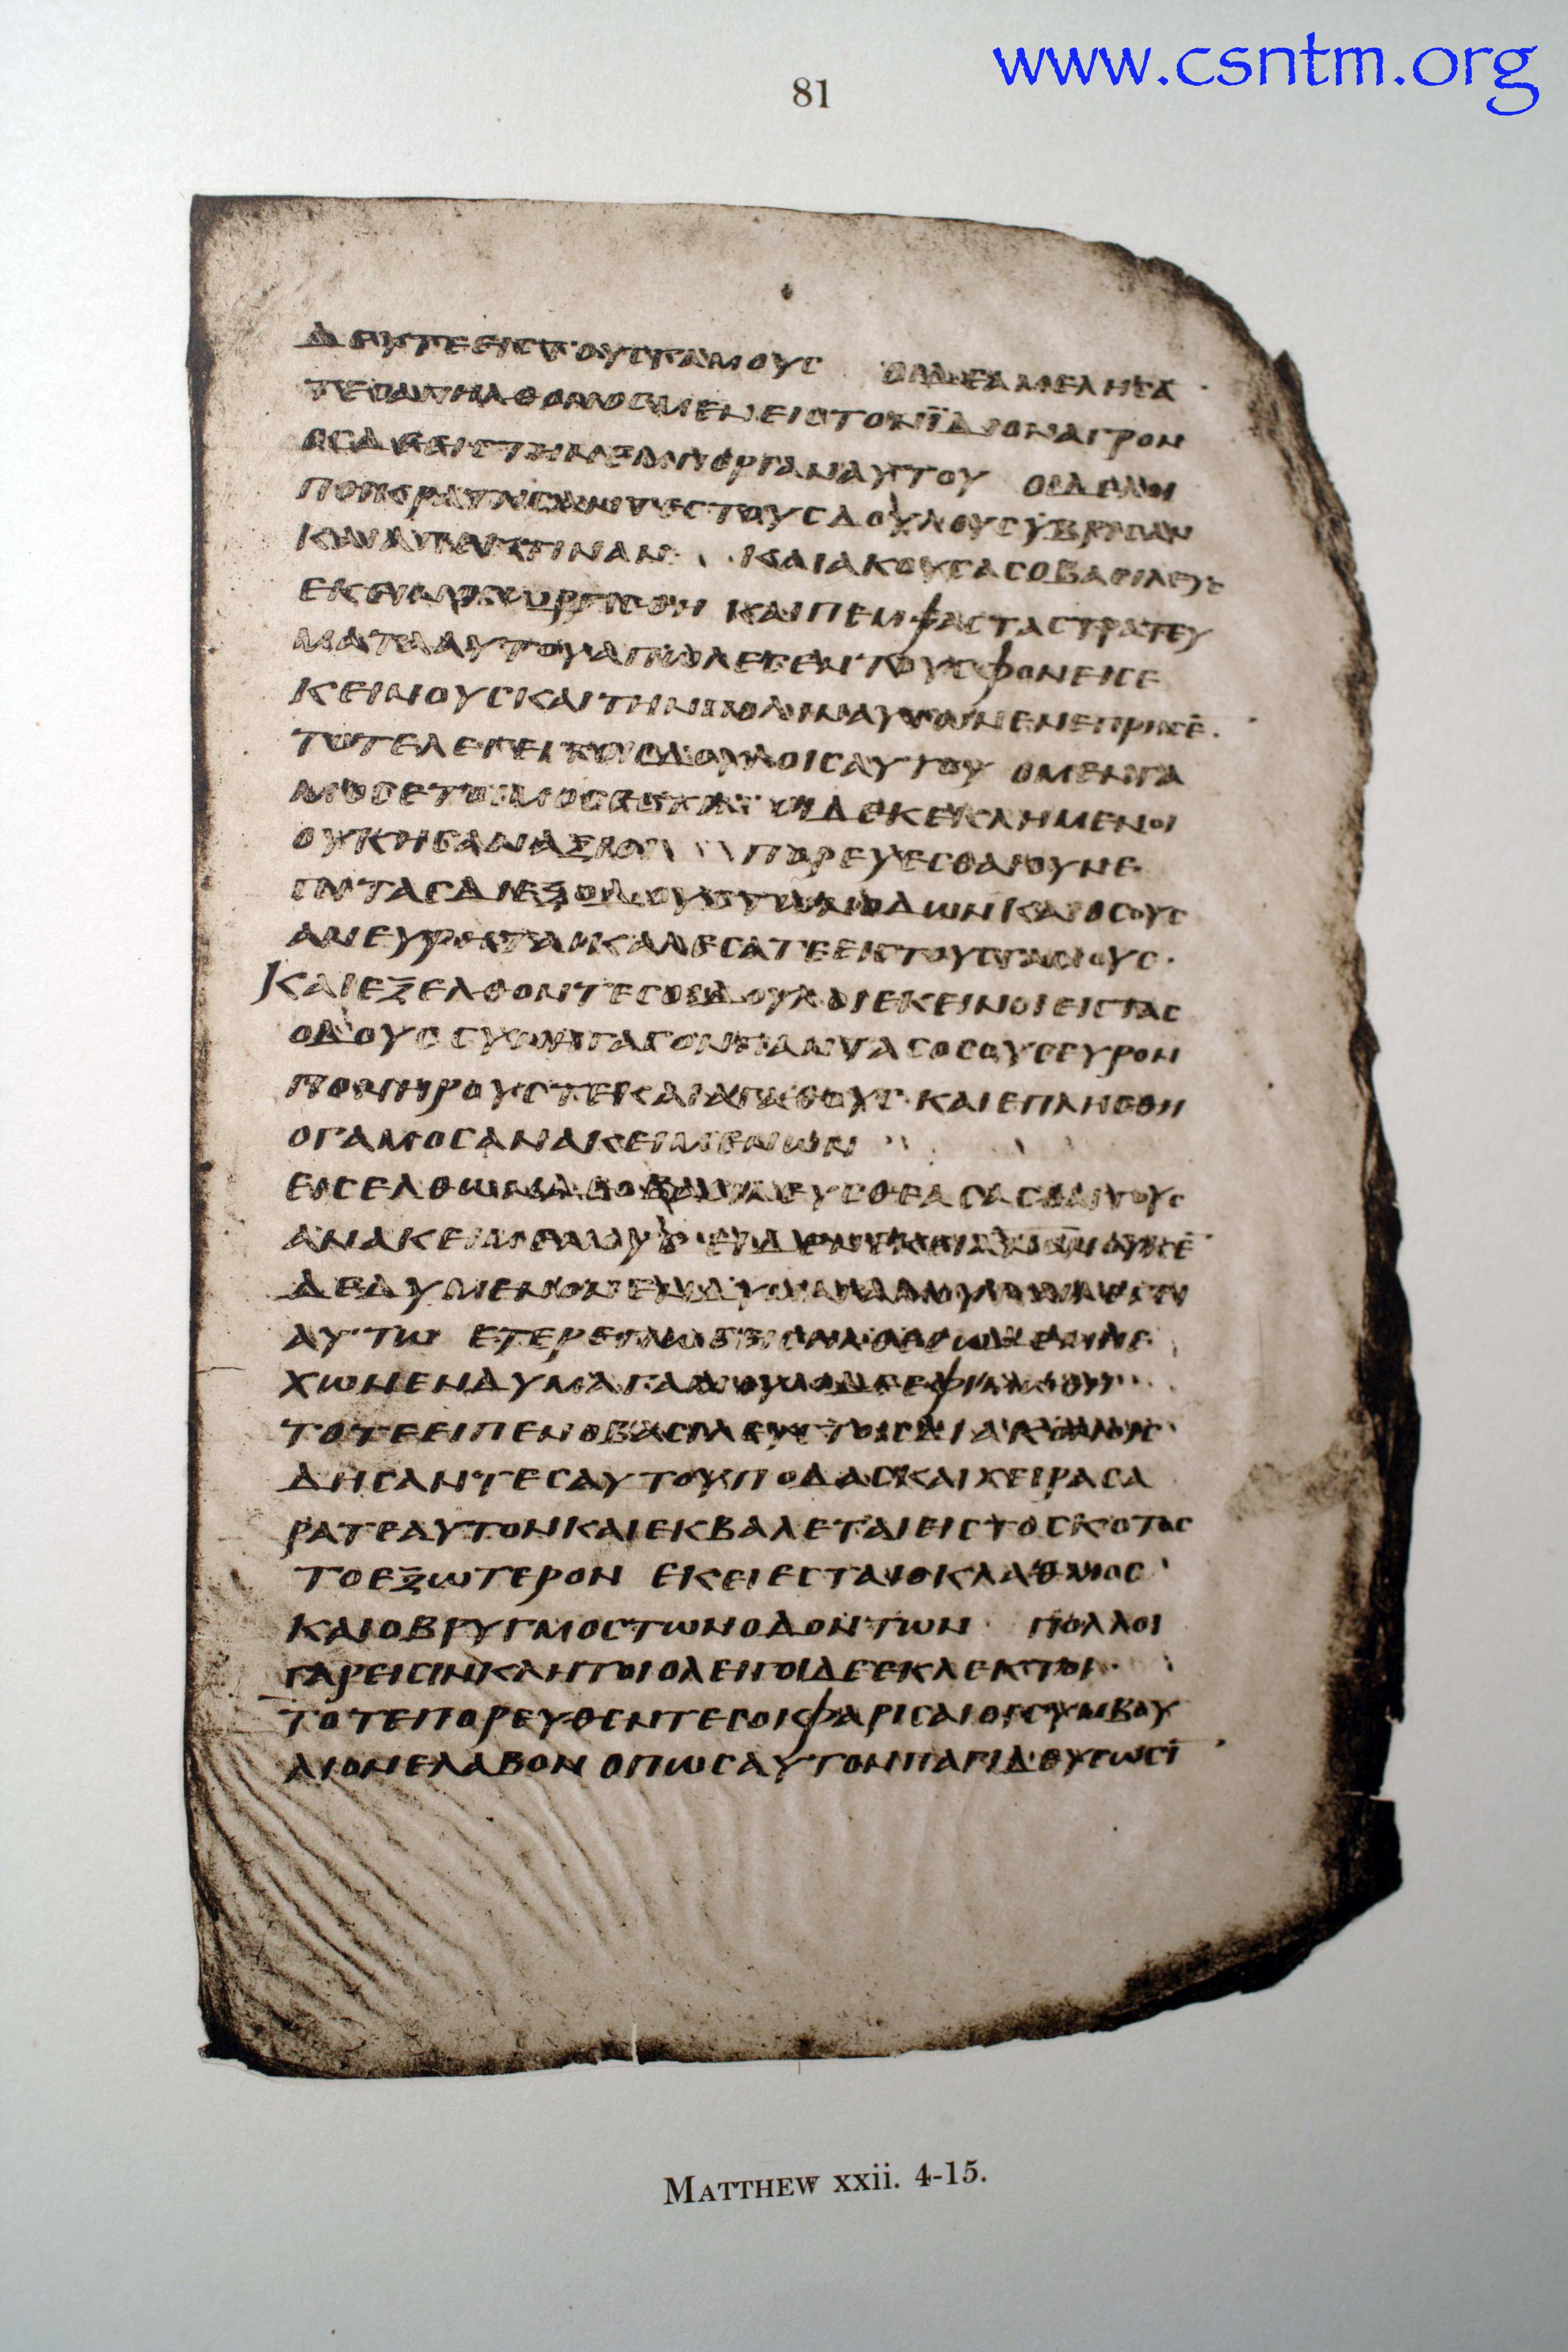 www.csntm.org
81
ΔΕΥΤΕΕΙϹΤΟΥϹΓΑΜΟΥϹ ΟΙΔΕΑΜΕΛΗϹΑ
ΤΕϹΑΠΗΛΘΟΝΟϹΜΕΝΕΙϹΤΟΝΪΔΙΟΝΑΓΡΟΝ
ΟϹΔΕΕΙϹΤΗΝΕΜΠΟΡΙΑΝΑΥΤΟΥ ΟΙΔΕΛΟΙ
ΠΟΙΚΡΑΤΗϹΑΝΤΕϹΤΟΥϹΔΟΥΛΟΥϹΫΒΡΙϹΑΝ
ΚΑΙΑΠΕΚΤΙΝΑΝ ΚΑΙΑΚΟΥϹΑϹΟΒΑϹΙΛΕΥϹ
ΚΑΙΠΕΜΨΑϹΤΑϹΤΡΑΤΕΥ
ΜΑΤΑΑΥΤΟΥΑΠΩΛΕϹΕΝΤΟΥϹΦΟΝΕΙϹΕ
ΚΕΙΝΟΥϹΚΑΙΤΗΝΠΟΛΙΝΑΥΤΩΝΕΝΕΠΡΗϹΕ̄
ΤΟΤΕΛΕΓΕΙΤΟΙϹΔΟΥΛΟΙϹΑΥΤΟΥ ΟΜΕΝΓΑ
ΜΟϹΕΤΟΙΜΟϹΕϹΤΙΝ ΟΙΔΕΚΕΚΛΗΜΕΝΟΙ
ΟΥΚΗϹΑΝΑΞΙΟΙ ΠΟΡΕΥΕϹΘΑΙΟΥΝΕ
ΠΙΤΑϹΔΙΕΞΟΔΟΥϹΤΩΝΟΔΩΝΚΑΙΟϹΟΥϹ
ΑΝΕΥΡΗΤΑΙΚΑΛΕϹΑΤΕΕΙϹΤΟΥϹΓΑΜΟΥϹ
ΚΑΙΕΞΕΛΘΟΝΤΕϹΟΙΔΟΥΛΟΙΕΚΕΙΝΟΙΕΙϹΤΑϹ
ΟΔΟΥϹϹΥΝΗΓΑΓΟΝΠΑΝΤΑϹΟϹΟΥϹΕΥΡΟΝ
ΠΟΝΗΡΟΥϹΤΕΚΑΙΑΓΑΘΟΥϹ ΚΑΙΕΠΛΗϹΘΗ
ΟΓΑΜΟϹΑΝΑΚΕΙΜΕΝΩΝ
ΕΙϹΕΛΘΩΝΔΕΟΒΑϹΙΛΕΥϹΘΕΑϹΑϹΘΑΙΤΟΥϹ
ΑΝΑΚΕΙΜΕΝΟΥϹ
ΔΕΔΥΜΕΝΟΝΕΝΔΥΜΑΓΑΜΟΥ
ΑΥΤΩ ΕΤΕΡΕ
ΧΩΝΕΝΔΥΜΑΓΑΜΟΥΟΔΕΕΦΙΜΩΘΗ
ΤΟΤΕΕΙΠΕΝΟΒΑϹΙΛΕΥϹΤΟΙϹΔΙΑΚΟΝΟΙϹ
ΔΗϹΑΝΤΕϹΑΥΤΟΥΠΟΔΑϹΚΑΙΧΕΙΡΑϹΑ
ΡΑΤΕΑΥΤΟΝΚΑΙΕΚΒΑΛΕΤΑΙΕΙϹΤΟϹΚΟΤΟϹ
ΤΟΕΞΩΤΕΡΟΝ ΕΚΕΙΕϹΤΑΙΟΚΛΑΘΜΟϹ
ΚΑΙΟΒΡΥΓΜΟϹΤΩΝΟΔΟΝΤΩΝ ΠΟΛΛΟΙ
ΓΑΡΕΙϹΙΝΚΛΗΤΟΙΟΛΕΙΓΟΙΔΕΕΚΛΕΚΤΟΙ
ΤΟΤΕΠΟΡΕΥΘΕΝΤΕϹΟΙΦΑΡΙϹΑΙΟΙϹΥΜΒΟΥ
ΛΙΟΝΕΛΑΒΟΝ ΟΠΩϹΑΥΤΟΝΠΑΓΙΔΕΥϹΩϹῙ
MATTHEW xxii. 4-15.